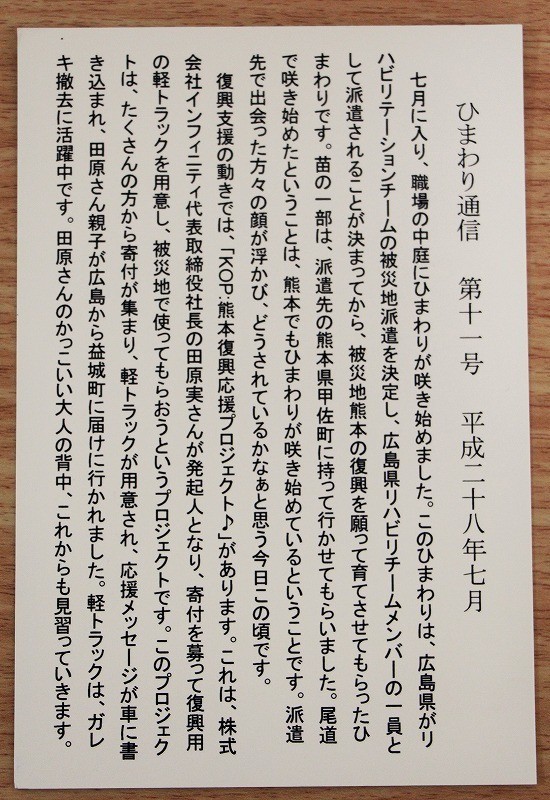 ひまわり通信　第十一号　平成二十八年七月
七月に入り、職場の中庭にひまわりが咲き始めました。このひまわりは、広島県がリ
ハビリテーションチームの被災地派遣を決定し、広島県リハビリチームメンバーの一員と
して派遣されることが決まってから、被災地熊本の復興を願って育てさせてもらったひ
まわりです。苗の一部は、派遣先の熊本県甲佐町に持って行かせてもらいました。尾道
で咲き始めたということは、熊本でもひまわりが咲き始めているということです。派遣
先で出会った方々の顔が浮かび、どうされているかなぁと思う今日この頃です。
復興支援の動きでは、「KOP:熊本復興応援プロジェクト♪」があります。これは、株式
会社インフィニティ代表取締役社長の田原実さんが発起人となり、寄付を募って復興用
の軽トラックを用意し、被災地で使ってもらおうというプロジェクトです。このプロジェク
トは、たくさんの方から寄付が集まり、軽トラックが用意され、応援メッセージが車に書
き込まれ、田原さん親子が広島から益城町に届けに行かれました。軽トラックは、ガレ
キ撤去に活躍中です。田原さんのかっこいい大人の背中、これからも見習っていきます。